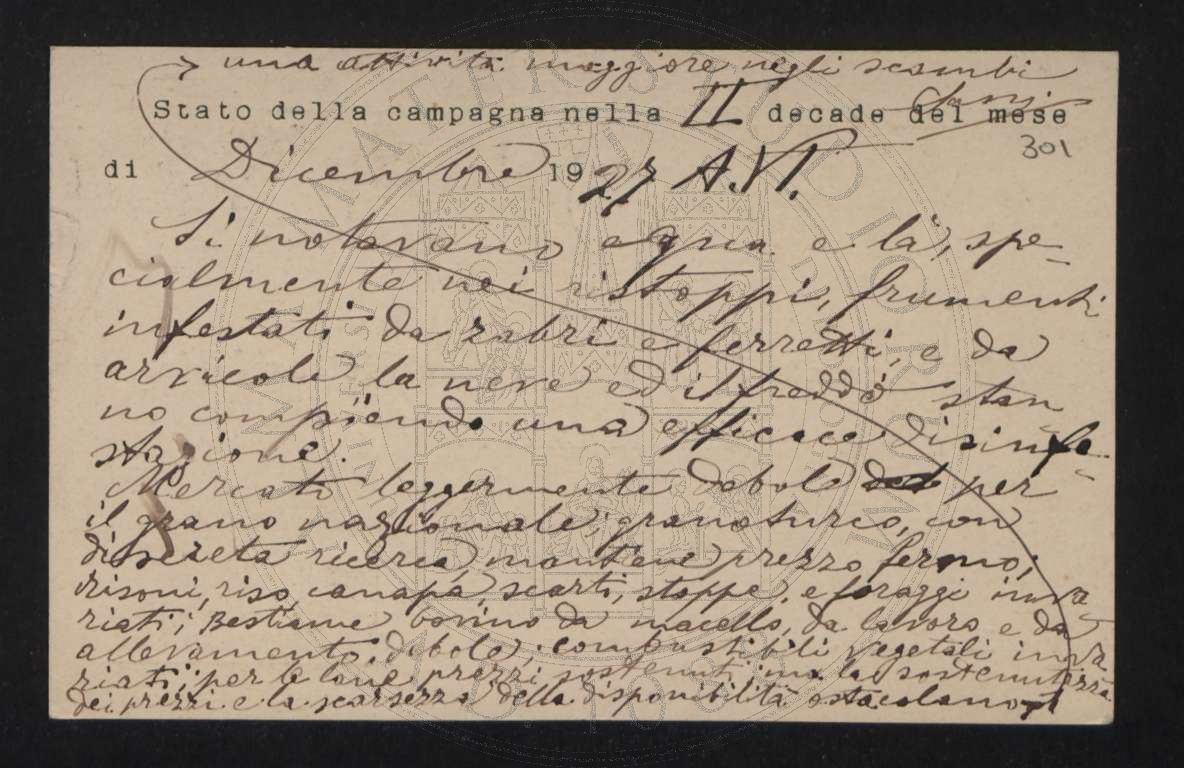 una attività maggiore negli scambi
Stato della campagna nella II decade del mese
301
di Dicembre 1927 A.VI.
Si notavano e qua e là, spe-
cialmente nei ristoppi, frumenti
infestati da zabri e ferretti, e da
arvicole la neve ed il freddo stan
no compiendo una efficace disinfe-
stazione.
Mercato leggermente debole per
il grano nazionale; granoturco, con
discreta ricerca, mantene prezzo fermo;
risoni, riso, canapa, scarti, stoppe, e foraggi inva
riati; Bestiame bovino da macello, da lavoro e da
allevamento, debole; combustibili vegetali inva
riati; per le lane prezzi sostenuti, ma la sostenutezza
dei prezzi e la scarsezza della disponibilità ostacolano